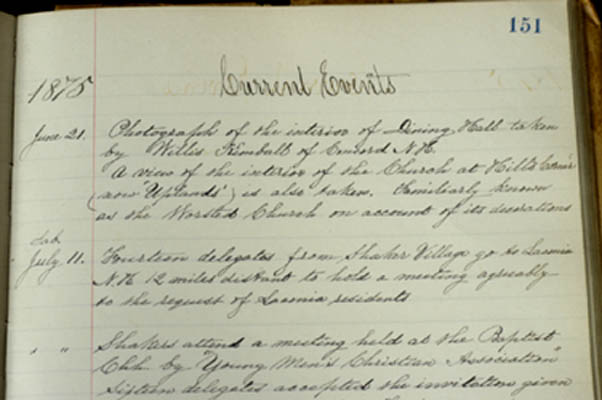 151
Current Events
1875
June 21. Photograph of the interior of Dining Hall taken
by Willis Kimball of Concord N.H.
A view of the interior of the Church at Hill's Corner
(now Uplands') is also taken. Familiarly known
as the Worsted Church on account of its decorations
Sab.
July 11. Fourteen delegates from Shaker Village go to Laconia
N.H. 12 miles distant to hold a meeting agreeably
to the request of Laconia residents
" " Shakers attend a meeting held at the Baptist
Chh. by "Young Men's Christian Association"
Sixteen delegates accepted the invitation given